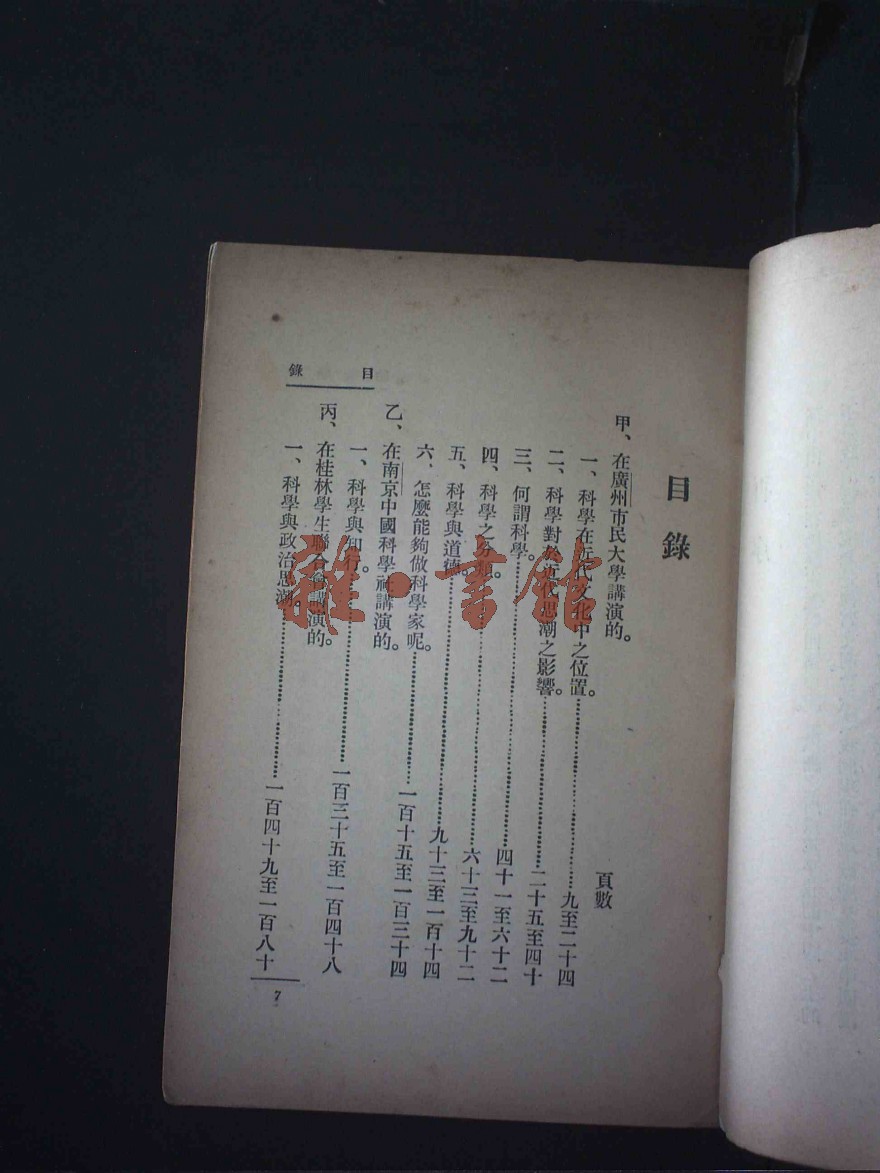 目錄
頁數
甲、在廣州市民大學講演的。
一、科學在近代文化中之位置。……九至二十四
二、科學對於近代思潮之影響。……二十五至四十
三、何謂科學。……四十一至六十二
四、科學之分類。……六十三至九十二
五、科學與道德。……九十三至一百十四
六、怎麼能夠做科學家呢。……一百十五至一百三十四
乙、在南京中國科學社講演的。
一、科學與知行。……一百三十五至一百四十八
丙、在桂林學生聯合會講演的。
一、科學與政治思潮。……一百四十九至一百八十
目錄
7
雜·書館